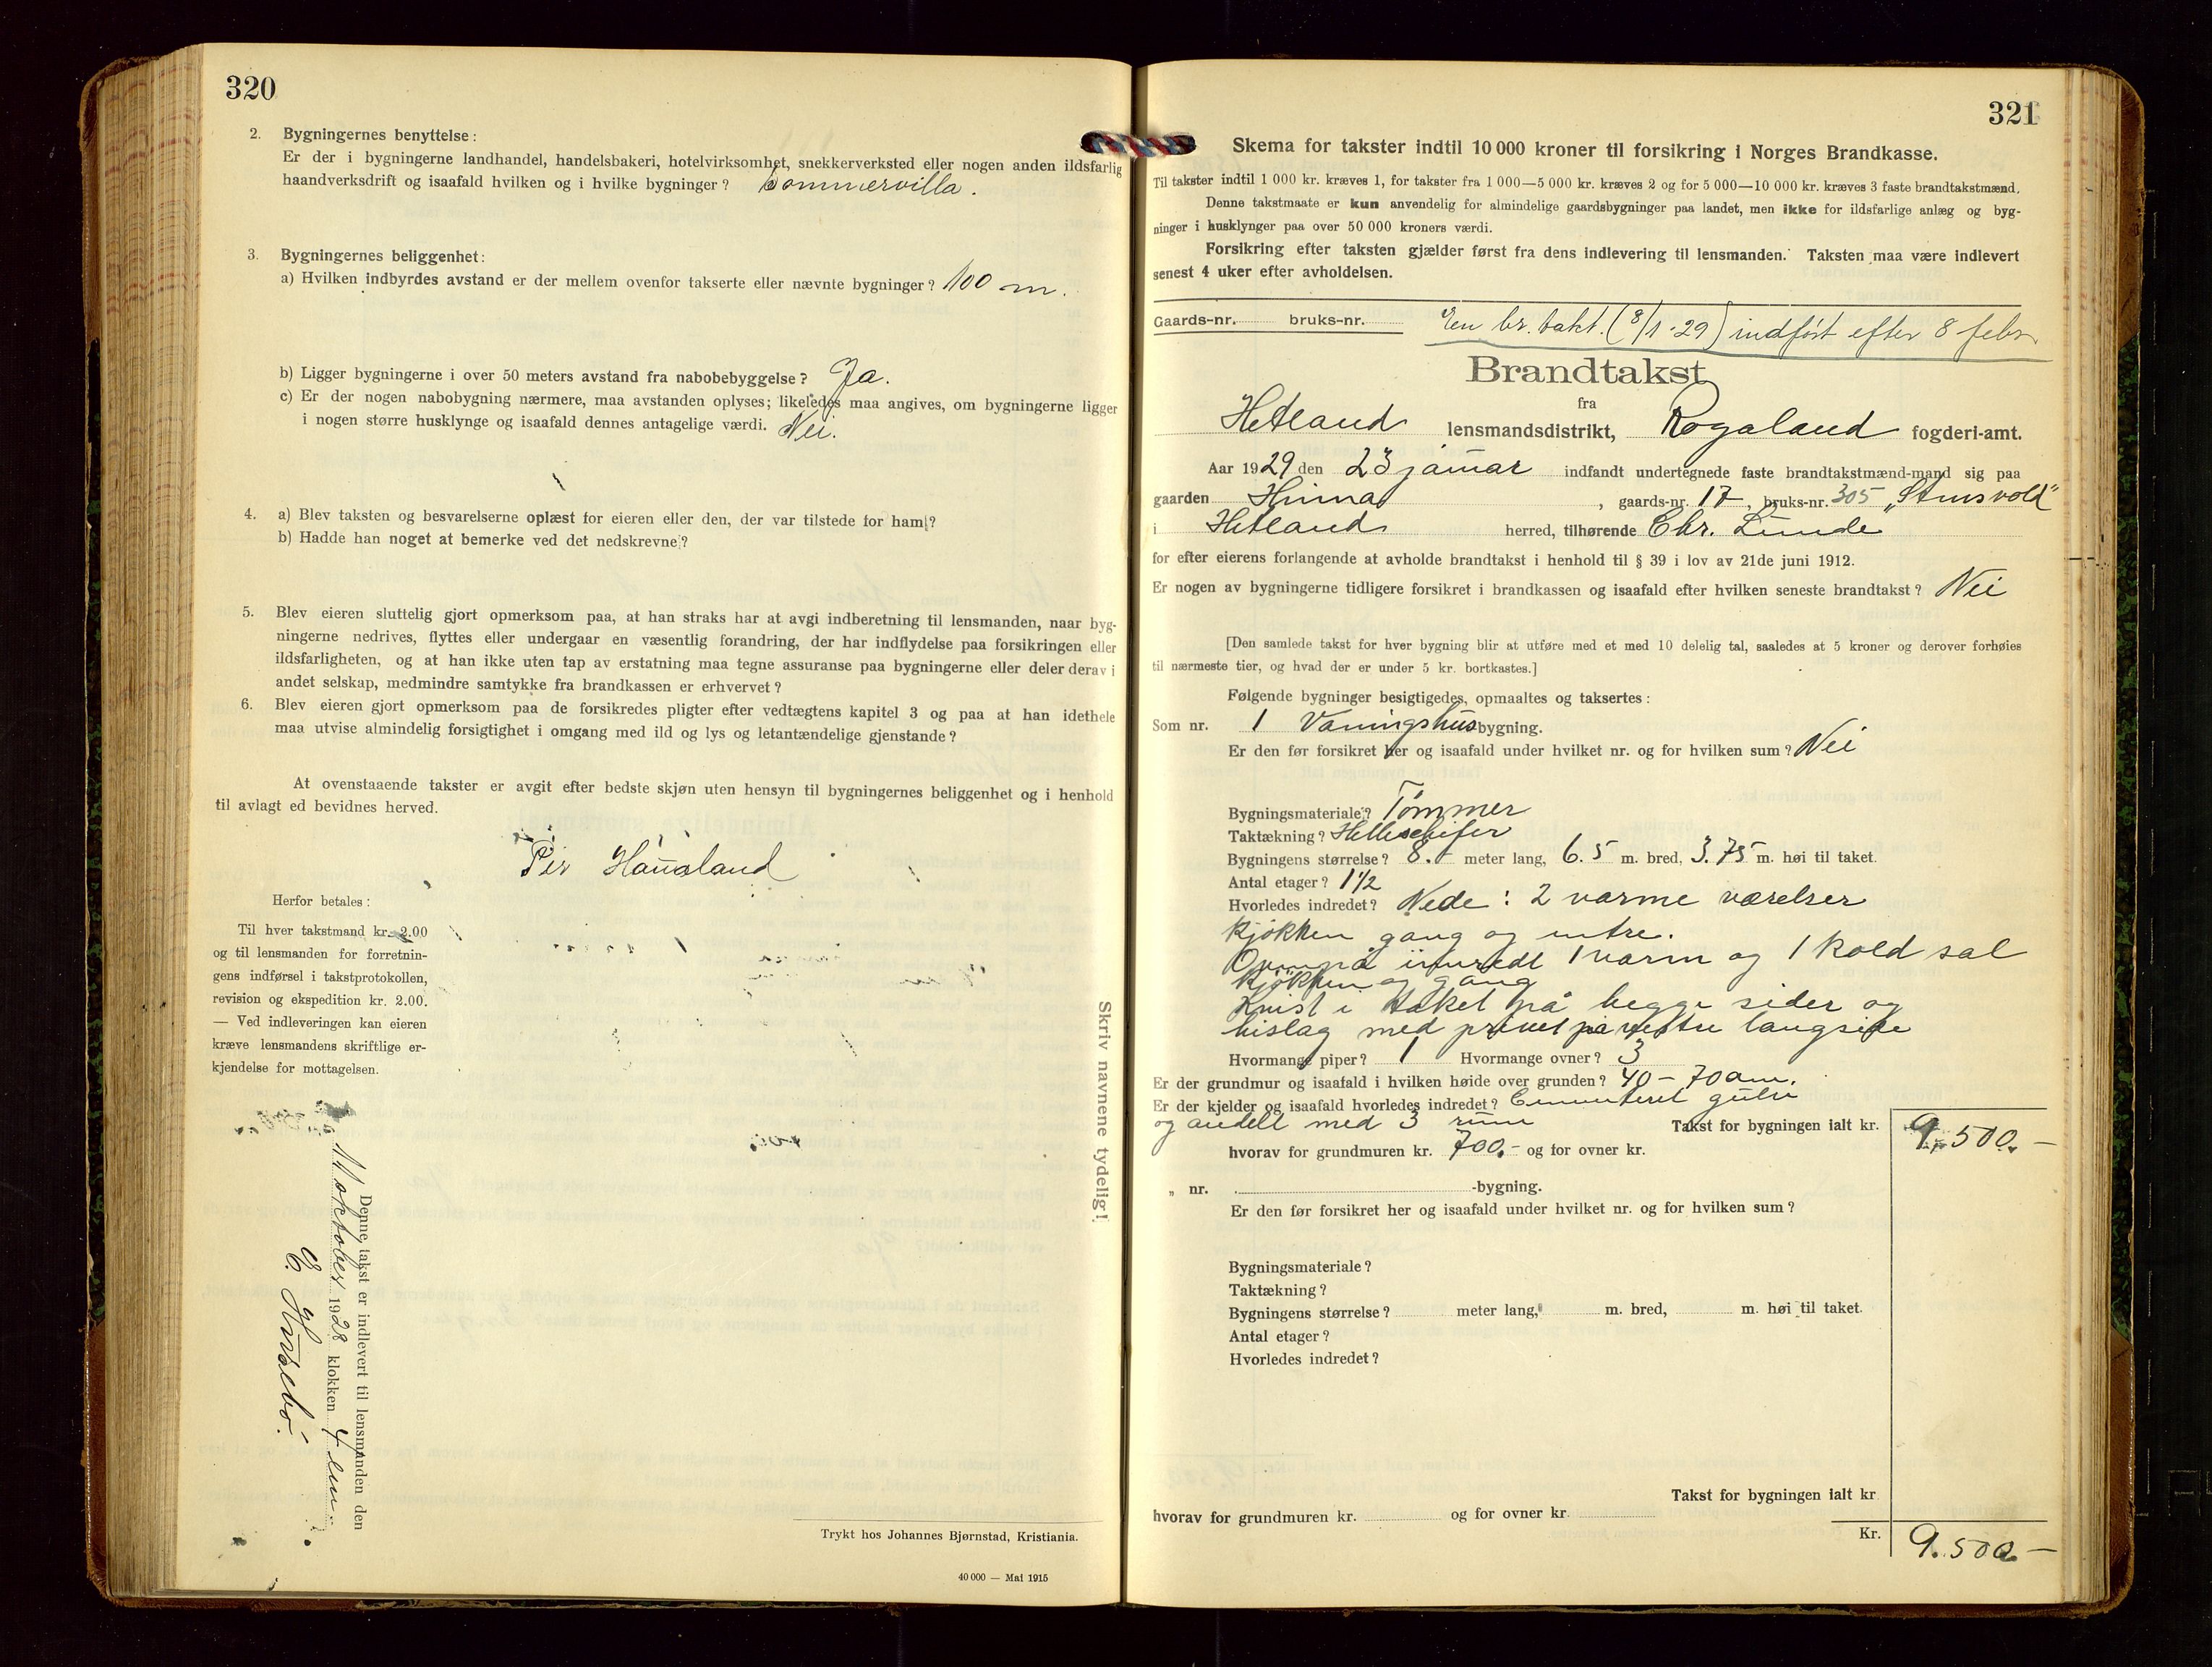 320
2. Bygningernes benyttelse:
Er der i bygningerne landhandel, handelsbakeri, hotelvirksomhet, snekkerverksted eller nogen anden ildsfarlig
haandverksdrift og isaafald hvilken og i hvilke bygninger? Sommervilla.
3. Bygningernes beliggenhet:
a) Hvilken indbyrdes avstand er der mellem ovenfor takserte eller nævnte bygninger? 100 m.
b) Ligger bygningerne i over 50 meters avstand fra nabobebyggelse? Ja.
c) Er der nogen nabobygning nærmere, maa avstanden oplyses; likeledes maa angives, om bygningerne ligger
i nogen større husklynge og isaafald dennes antagelige værdi. Nei.
4. a) Blev taksten og besvarelserne oplæst for eieren eller den, der var tilstede for ham?
b) Hadde han noget at bemerke ved det nedskrevne?
5. Blev eieren sluttelig gjort opmerksom paa, at han straks har at avgi indberetning til lensmanden, naar byg-
ningerne nedrives, flyttes eller undergaar en væsentlig forandring, der har indflydelse paa forsikringen eller
ildsfarligheten, og at han ikke uten tap av erstatning maa tegne assuranse paa bygningerne eller deler derav i
andet selskap, medmindre samtykke fra brandkassen er erhvervet?
6. Blev eieren gjort opmerksom paa de forsikredes pligter efter vedtægtens kapitel 3 og paa at han idethele
maa utvise almindelig forsigtighet i omgang med ild og lys og letantændelige gjenstande?
At ovenstaaende takster er avgit efter bedste skjøn uten hensyn til bygningernes beliggenhet og i henhold
til avlagt ed bevidnes herved.
Per Hausland
Herfor betales:
Til hver takstmand kr. 2.00
og til lensmanden for forretnin-
gens indførsel i takstprotokollen,
revision og ekspedition kr. 2.00.
— Ved indleveringen kan eieren
kræve lensmandens skriftlige er-
kjendelse for mottagelsen.
Denne takst er indlevert til lensmanden den
11 oktober 1928 klokken 4 em.
Skriv navnene tydelig!
Trykt hos Johannes Bjørnstad, Kristiania.
40 000 — Mai 1915
321
Skema for takster indtil 10 000 kroner til forsikring i Norges Brandkasse.
Til takster indtil 1 000 kr. kræves 1, for takster fra 1 000—5 000 kr. kræves 2 og for 5 000—10 000 kr. kræves 3 faste brandtakstmænd.
Denne takstmaate er kun anvendelig for almindelige gaardsbygninger paa landet, men ikke for ildsfarlige anlæg og byg-
ninger i husklynger paa over 50 000 kroners værdi.
Forsikring efter taksten gjælder først fra dens indlevering til lensmanden. Taksten maa være indlevert
senest 4 uker efter avholdelsen.
Gaards-nr. bruks-nr. En br. takt. (8/1-29) indført efter 8 febr.
Brandtakst
fra
Hetland lensmandsdistrikt, Rogaland fogderi-amt.
Aar 1929 den 23 januar indfandt undertegnede faste brandtakstmænd-mand sig paa
gaarden Hinna, gaards-nr. 17, bruks-nr. 305
i Hetland herred, tilhørende Chr. Lunde
for efter eierens forlangende at avholde brandtakst i henhold til § 39 i lov av 21de juni 1912.
Er nogen av bygningerne tidligere forsikret i brandkassen og isaafald efter hvilken seneste brandtakst? Nei
[Den samlede takst for hver bygning blir at utføre med et med 10 delelig tal, saaledes at 5 kroner og derover forhøies
til nærmeste tier, og hvad der er under 5 kr. bortkastes.]
Følgende bygninger besigtigedes, opmaaltes og taksertes:
Som nr. 1 Vaningshus bygning.
Er den før forsikret her og isaafald under hvilket nr. og for hvilken sum? Nei
Bygningsmateriale? Tömmer
Taktækning? Helleskifer
Bygningens størrelse? 8.- meter lang, 6.5 m. bred, 3.75 m. høi til taket.
Antal etager? 1 1/2
Hvorledes indredet? Nede: 2 varme værelser
kjökken gang og entre.
Ovenpå innredt 1 varm og 1 kold sal
kjökken og gang
Kvist i taket på begge sider og
bislag med privet på vestre langside
Hvormange piper? 1 Hvormange ovner? 3
Er der grundmur og isaafald i hvilken høide over grunden? 40 - 70 cm.
Er der kjelder og isaafald hvorledes indredet? Cementeret gulv
og avdelt med 3 rum Takst for bygningen ialt kr. 9.500.-
hvorav for grundmuren kr. 700.- og for ovner kr.
„ nr. -bygning.
Er den før forsikret her og isaafald under hvilket nr. og for hvilken sum?
Bygningsmateriale?
Taktækning?
Bygningens størrelse? meter lang, m. bred, m. høi til taket.
Antal etager?
Hvorledes indredet?
Takst for bygningen ialt kr
hvorav for grundmuren kr. og for ovner kr.
Kr. 9.500.-